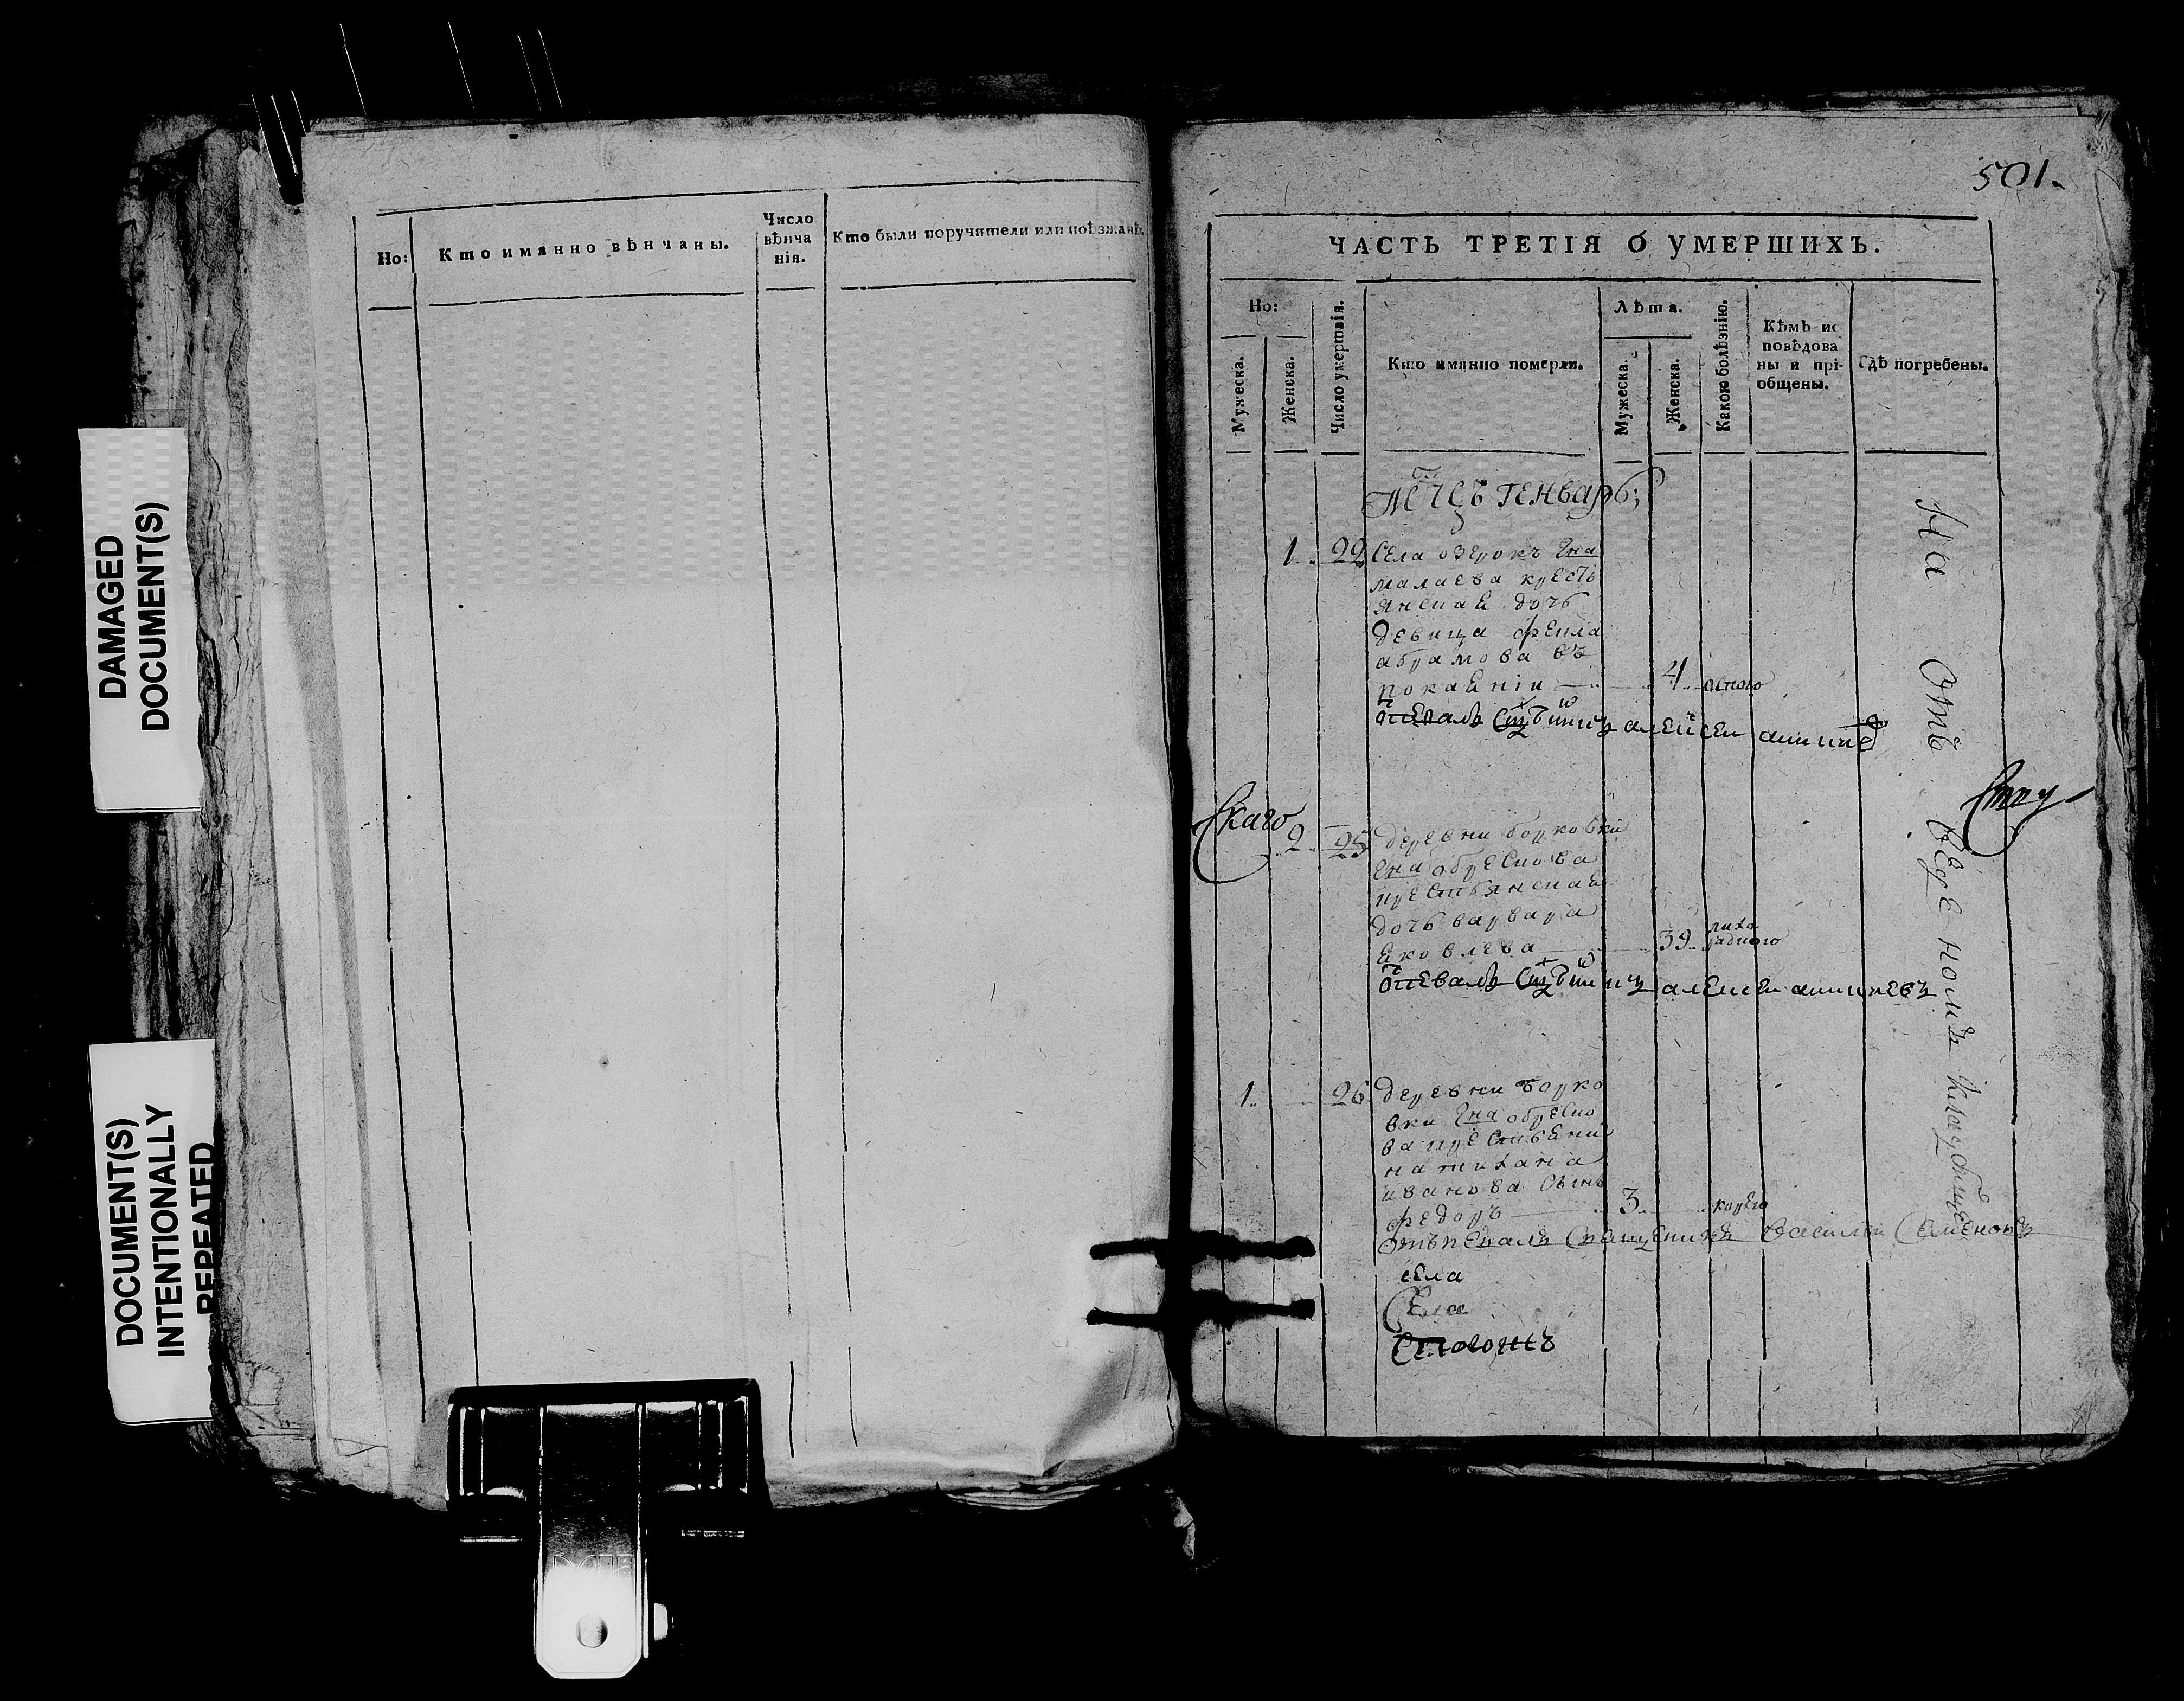 DAMAGED
DOCUMENT(S)
DOCUMENT(S)
INTENTIONALLY
REPEATED
Но:
Кто имянно вѣнчаны.
Число
вѣнча
нія.
Кто были поручители или поѣзжанѣ.
501.
ЧАСТЬ ТРЕТІЯ О УМЕРШИХЪ.
Но:
Мужеска.
Женска.
Число умертвія.
Кто имянно померли.
Лѣта.
Мужеска.
Женска.
Какою болѣзнію.
Кѣмъ ис
повѣдова
ны и прі-
общены.
Гдѣ погребены.
Мсцъ генварь;
1 22 Села озерокъ Гна
малаева кресть
янская дочь
девица фекла
абрамова въ
покаяніи 4 оспою
алексеи
Скаго
2 25 деревни борковки
Гна обрескова
крестьянская
дочь варвара
яковлева 39 лихо
радкою
алексеи
1 26 деревни борко
вки Гна обреско
ва крестьяни
на
иванова сынъ
федоръ 3 корью
отпевалъ священникъ Василій Семеновъ
села
Села
На отъ веденомъ кладбище